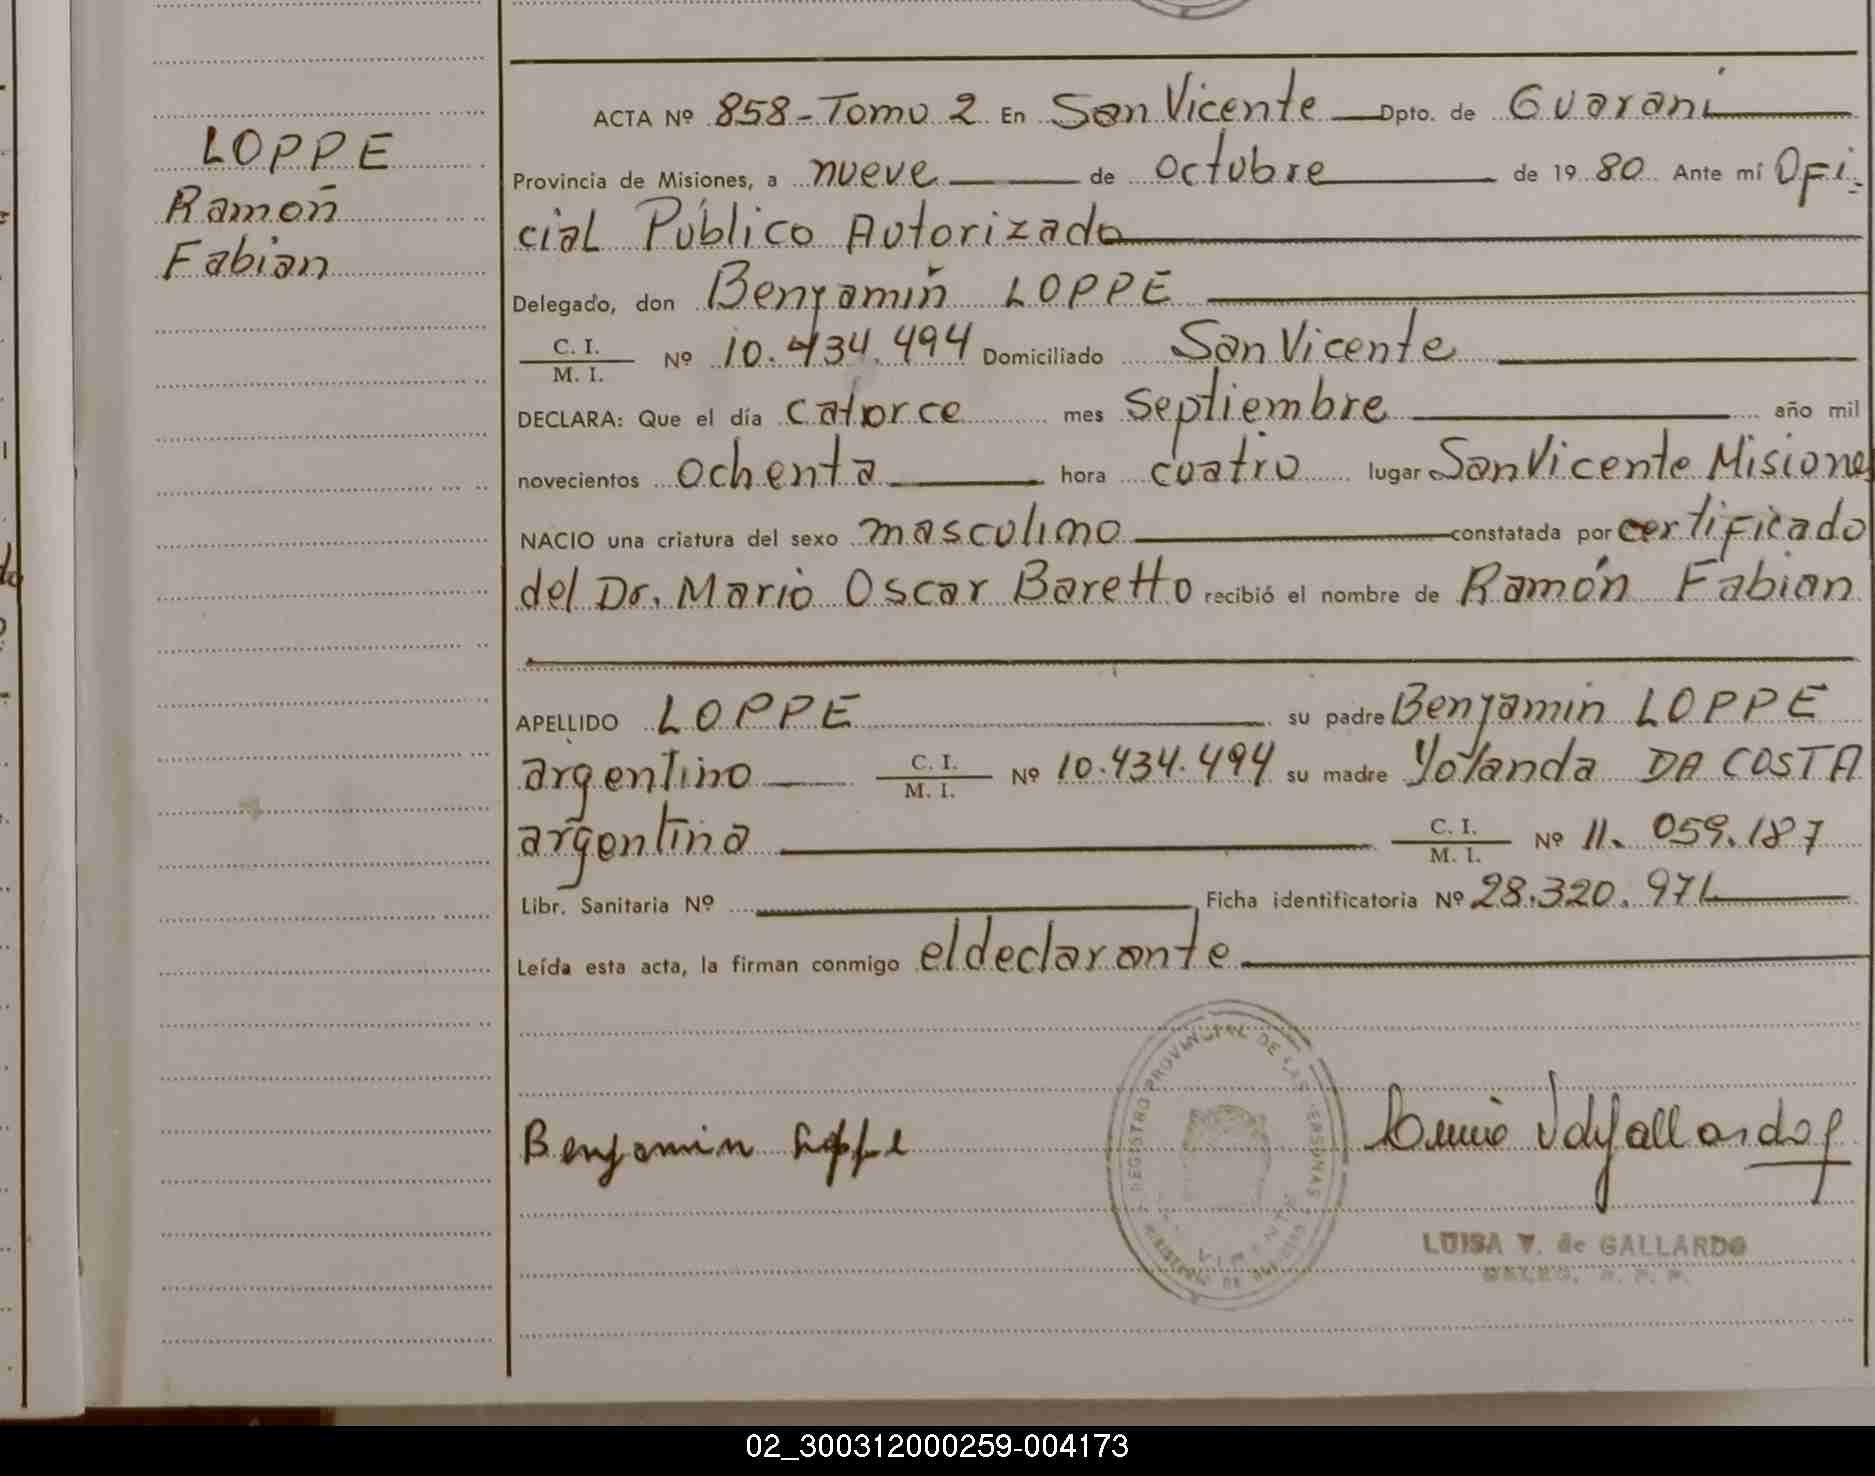 LOPPE
Ramón
Fabian
ACTA Nº 858-Tomo 2 En San Vicente Dpto. de Guaraní
Provincia de Misiones, a nueve de octubre de 19 80 Ante mí Ofi-
cial Público Autorizado
Delegado, don Benjamín LOPPE
C. I.
M. I. Nº 10.434.494 Domiciliado San Vicente
DECLARA: Que el día catorce mes Septiembre año mil
novecientos ochenta hora cuatro lugar San Vicente Misiones
NACIO una criatura del sexo masculino constatada por certificado
del Dr. Mario Oscar Baretto recibió el nombre de Ramón Fabian
APELLIDO LOPPE su padre Benjamin LOPPE
argentino C. I.
M. I. Nº 10.434.494 su madre Yolanda DA COSTA
argentina C. I.
M. I. Nº 11.059.187
Libr. Sanitaria Nº Ficha identificatoria Nº 28.320.971
Leída esta acta, la firman conmigo el declarante
REGISTRO PROVINCIAL DE LAS PERSONAS
Benjamin Loppe
LUISA V. de GALLARDO
02_300312000259-004173